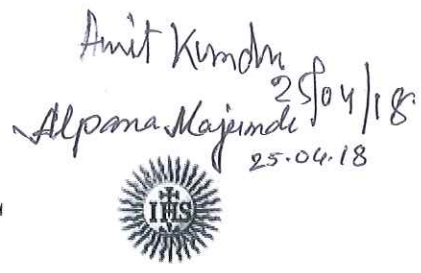 Amit Kundu
25/04/18
Alpana Majumde
25.04.18
IHS